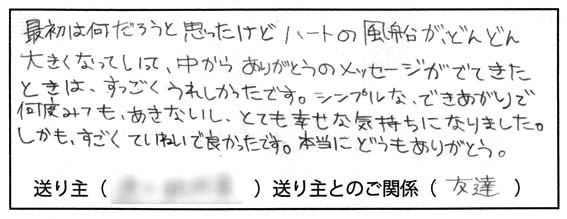 最初は何だろうと思ったけどハートの風船が、どんどん
大きくなってしいて、中からありがとうのメッセージがでてきた
ときは、すっごくうれしかったです。シンプルな、できあがりで
何度みても、あきないし、とても幸せな気持ちになりました。
しかも、すごくていねいで良かったです。本当にどうもありがとう。
送り主（　　　）送り主とのご関係（友達）